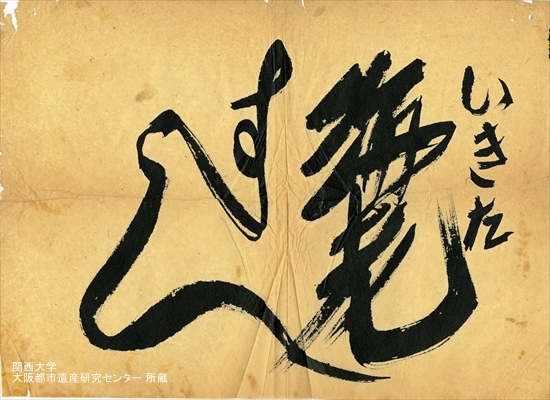 いきた
海老
関西大学
大阪都市遺産研究センター 所蔵